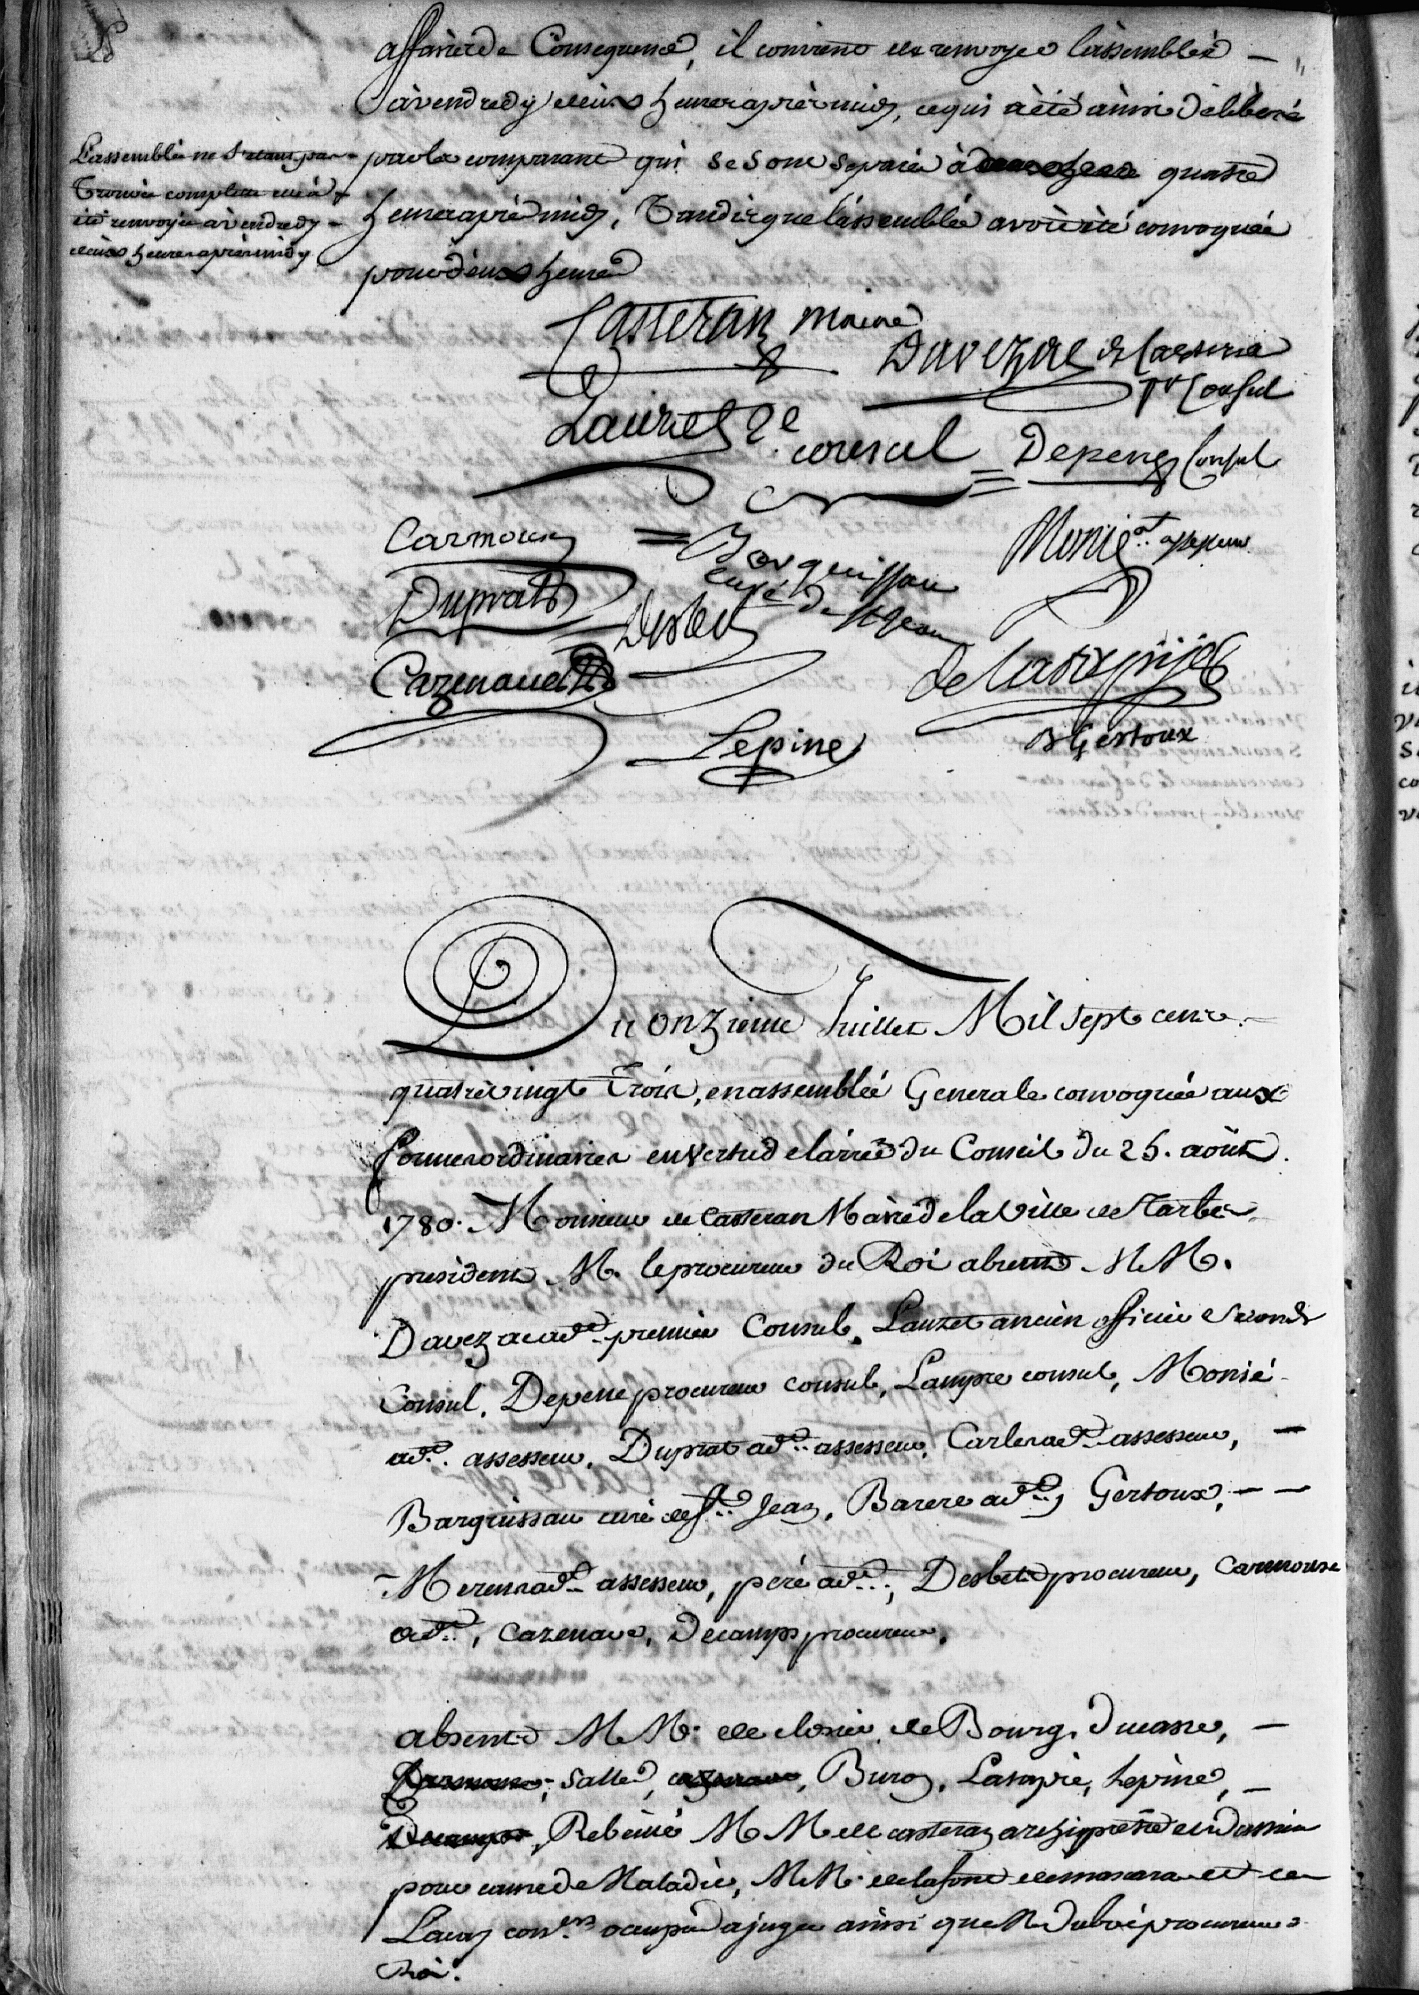 affaire de Consequence, il convient de renvoyer l'assemblée
à vendredy deux heures après midy, ce qui a été ainsi déliberé
par les comparans qui se sont separés à quatre
heures après midy, Tandis que l'assemblée avoit été convoquée
pour deux heures
L'assemblée ne s'etant pas
Trouvée complette elle a
été renvoyée à vendredy
deux heures après midy
Casteran maire
Davezac de Castera
1er Consul
Lauzet 2e
consul
Depene Consul
Carmouze
Barguissau
curé de St Jean
Monié at assesseur
Duprat
Desbets
Cazenave
de Lasapie
Lepine
B Gertoux
Du onzieme Juillet Mil sept cens
quatre vingt Trois, en assemblée Generale convoquée aux
formes ordinaires en vertu de l'arrêt du Conseil du 25. août
1780. Monsieur de Casteran Maire de la Ville de Tarbes
president. M. le procureur du Roi absent MM.
Davezac adt premier Consul, Lauzet ancien officier second
Consul, Depene procureur consul, Lampre consul, Monié
adt. assesseur, Duprat adt assesseur, Carles adt assesseur,
Barguissau curé de St Jean, Barere adt, Gertoux,
Merens adt assesseur, peré adt, Desbets procureur, Carmouze
adt, Cazenave, Decamps procureur.
absents MM. de clarac de Bourg, Ducasse,
Salles, Buron, Lasapie, Lepine,
Decamps, MM de casteran archiprêtre et Dassieu
pour cause de Maladie, MM. de lafont de
Lacay coners occupés a juger ainsi que M Dubois procureur
Roi.